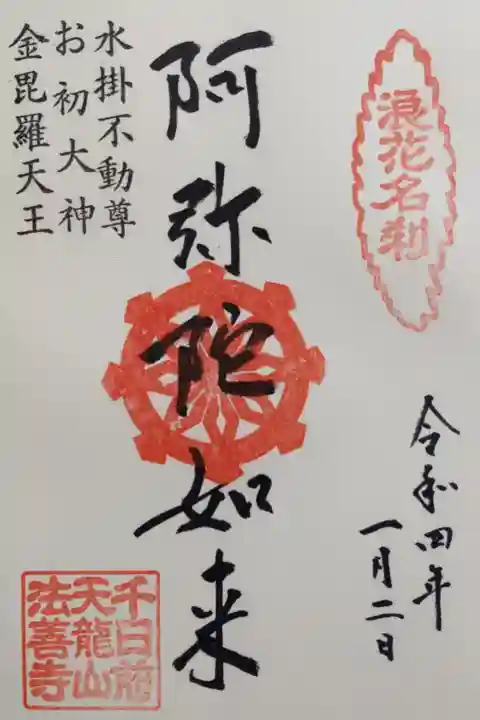 浪花名刹
令和四年
一月二日
阿弥陀如来
水掛不動尊
お初大神
金毘羅天王
千日前
天龍山
法善寺